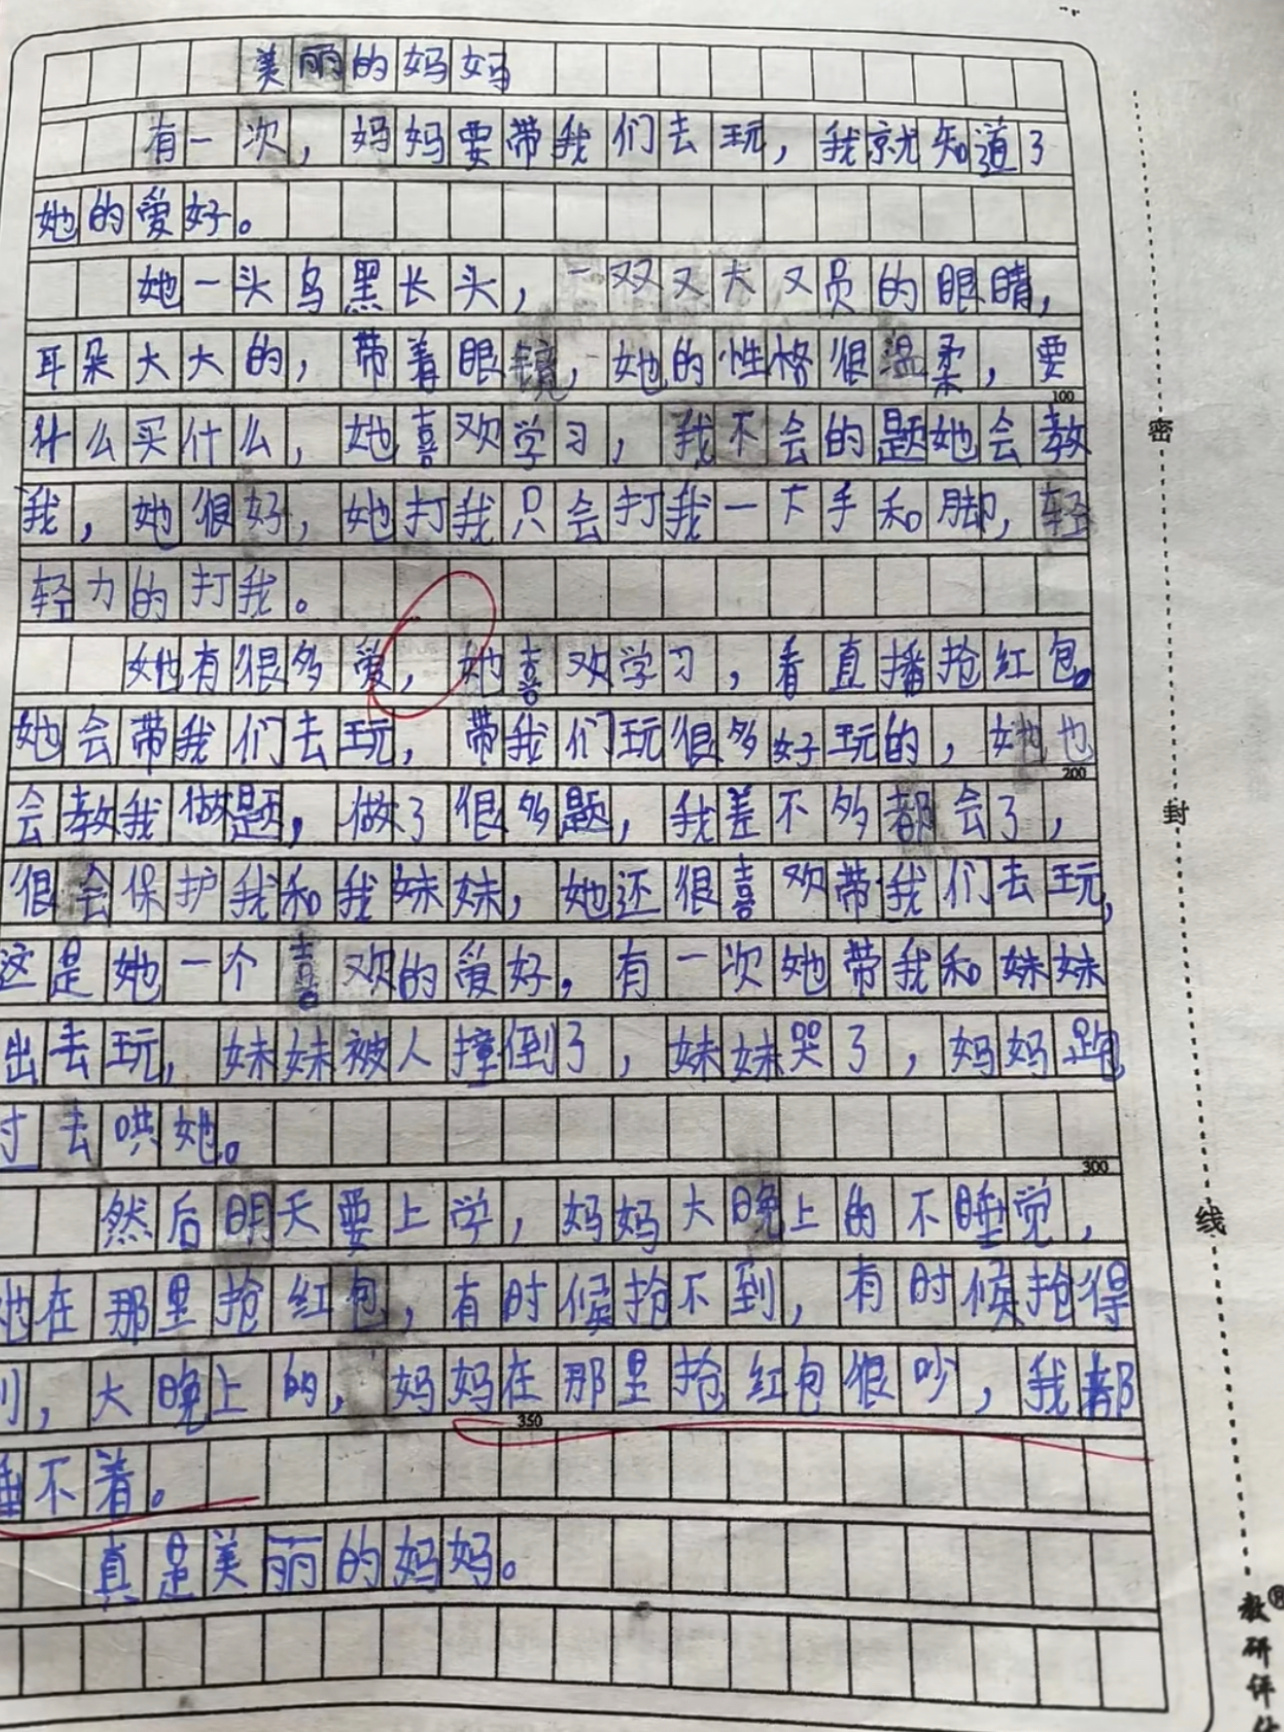 美丽的妈妈
有一次，妈妈要带我们去玩，我就知道了
她的爱好。
她一头乌黑长头，一双又大又员的眼睛，
耳朵大大的，带着眼镜，她的性格很温柔，要
100
什么买什么，她喜欢学习，我不会的题她会教
我，她很好，她打我只会打我一下手和脚，轻
轻力的打我。
她有很多爱，她喜欢学习，看直播抢红包。
她会带我们去玩，带我们玩很多好玩的，她也
200
会教我做题，做了很多题，我差不多都会了，
很会保护我和我妹妹，她还很喜欢带我们去玩，
这是她一个喜欢的爱好，有一次她带我和妹妹
出去玩，妹妹被人撞倒了，妹妹哭了，妈妈跑
过去哄她。
300
然后明天要上学，妈妈大晚上的不睡觉，
她在那里抢红包，有时候抢不到，有时候抢得
到，大晚上的，妈妈在那里抢红包很吵，我都
350
睡不着。
真是美丽的妈妈。
密
封
线
教研评估